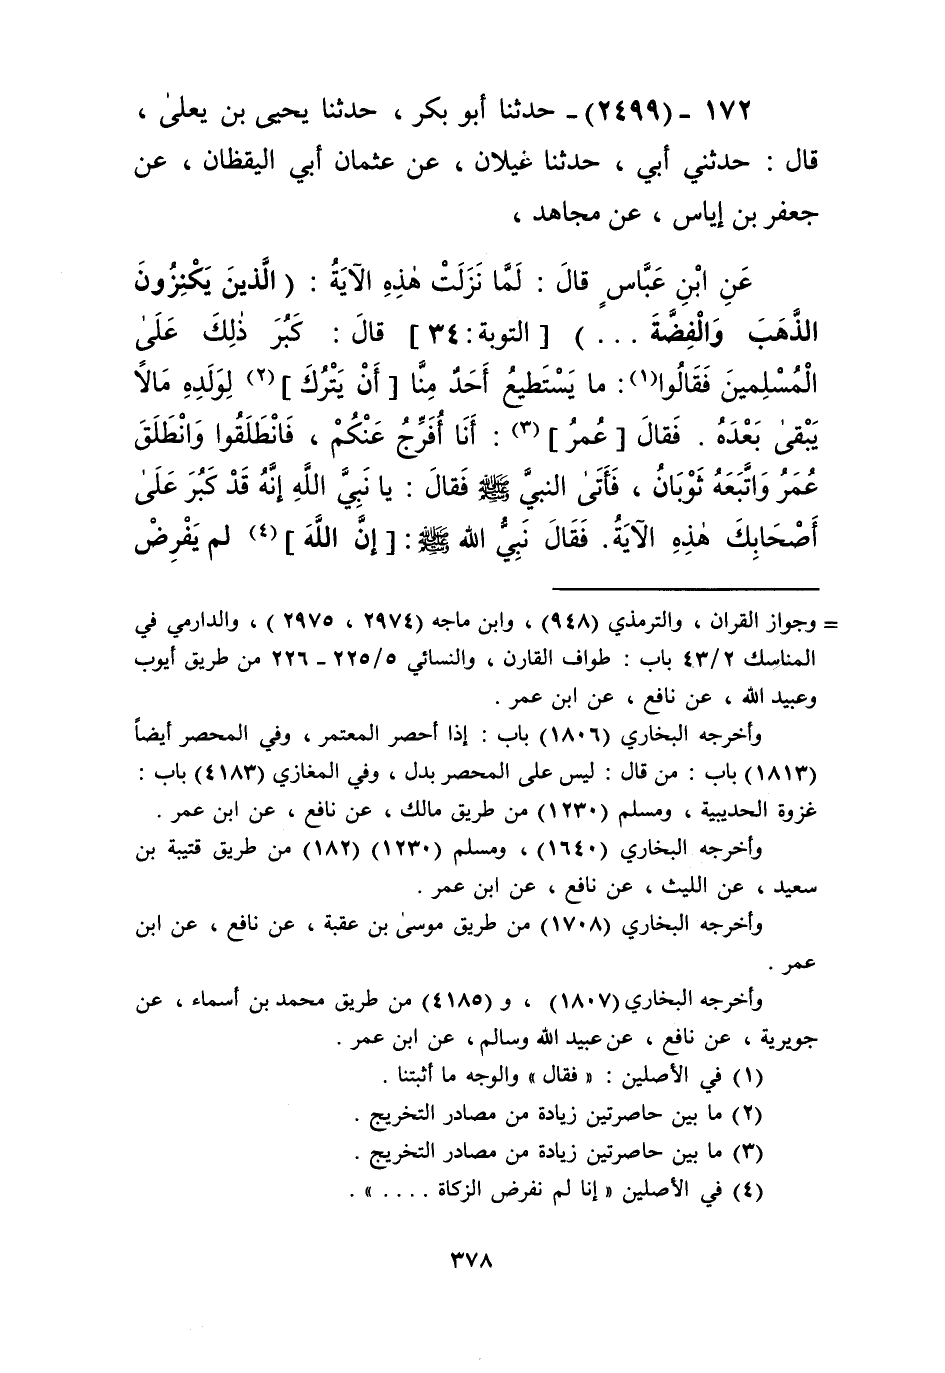 ١٧٢ - (٢٤٩٩) - حدثنا أبو بكر ، حدثنا يحيى بن يعلىٰ ،
قال : حدثني أبي ، حدثنا غيلان ، عن عثمان أبي اليقظان ، عن
جعفر بن إياس ، عن مجاهد ،
عَنِ ابْنِ عَبَّاسٍ قالَ : لَمَّا نَزَلَتْ هٰذِهِ الآيَةُ : ( الَّذينَ يَكْنِزُونَ
الذَّهَبَ وَالْفِضَّةَ ... ) [ التوبة : ٣٤ ] قالَ : كَبُرَ ذٰلِكَ عَلَىٰ
الْمُسْلِمينَ فَقَالُوا(١) : ما يَسْتَطيعُ أَحَدٌ مِنَّا [ أَنْ يَتْرُكَ ](٢) لِوَلَدِهِ مَالاً
يَبْقىٰ بَعْدَهُ . فَقالَ [ عُمرُ ](٣) : أَنَا أُفَرِّجُ عَنْكُمْ ، فَانْطَلَقُوا وَانْطَلَقَ
عُمَرُ وَاتَّبَعَهُ ثَوْبَانُ ، فَأَتىٰ النبيَّ ﷺ فَقالَ : يا نَبِيَّ اللَّهِ إنَّهُ قَدْ كَبُرَ عَلَىٰ
أَصْحَابِكَ هٰذِهِ الآيَةُ. فَقَالَ نَبِيُّ الله ﷺ : [ إنَّ اللَّهَ ](٤) لم يَفْرِضْ
= وجواز القران ، والترمذي (٩٤٨) ، وابن ماجه (٢٩٧٤ ، ٢٩٧٥ ) ، والدارمي في
المناسك ٤٣/٢ باب : طواف القارن ، والنسائي ٢٢٥/٥ - ٢٢٦ من طريق أيوب
وعبيد الله ، عن نافع ، عن ابن عمر .
وأخرجه البخاري (١٨٠٦) باب : إذا أحصر المعتمر ، وفي المحصر أيضاً
(١٨١٣) باب : من قال : ليس على المحصر بدل ، وفي المغازي (٤١٨٣) باب :
غزوة الحديبية ، ومسلم (١٢٣٠) من طريق مالك ، عن نافع ، عن ابن عمر .
وأخرجه البخاري (١٦٤٠) ، ومسلم (١٢٣٠) (١٨٢) من طريق قتيبة بن
سعيد ، عن الليث ، عن نافع ، عن ابن عمر .
وأخرجه البخاري (١٧٠٨) من طريق موسىٰ بن عقبة ، عن نافع ، عن ابن
عمر .
وأخرجه البخاري (١٨٠٧) ، و (٤١٨٥) من طريق محمد بن أسماء ، عن
جويرية ، عن نافع ، عن عبيد الله وسالم ، عن ابن عمر .
(١) في الأصلين : « فقال » والوجه ما أثبتنا .
(٢) ما بين حاصرتين زيادة من مصادر التخريج .
(٣) ما بين حاصرتين زيادة من مصادر التخريج .
(٤) في الأصلين « إنا لم نفرض الزكاة .... » .
٣٧٨